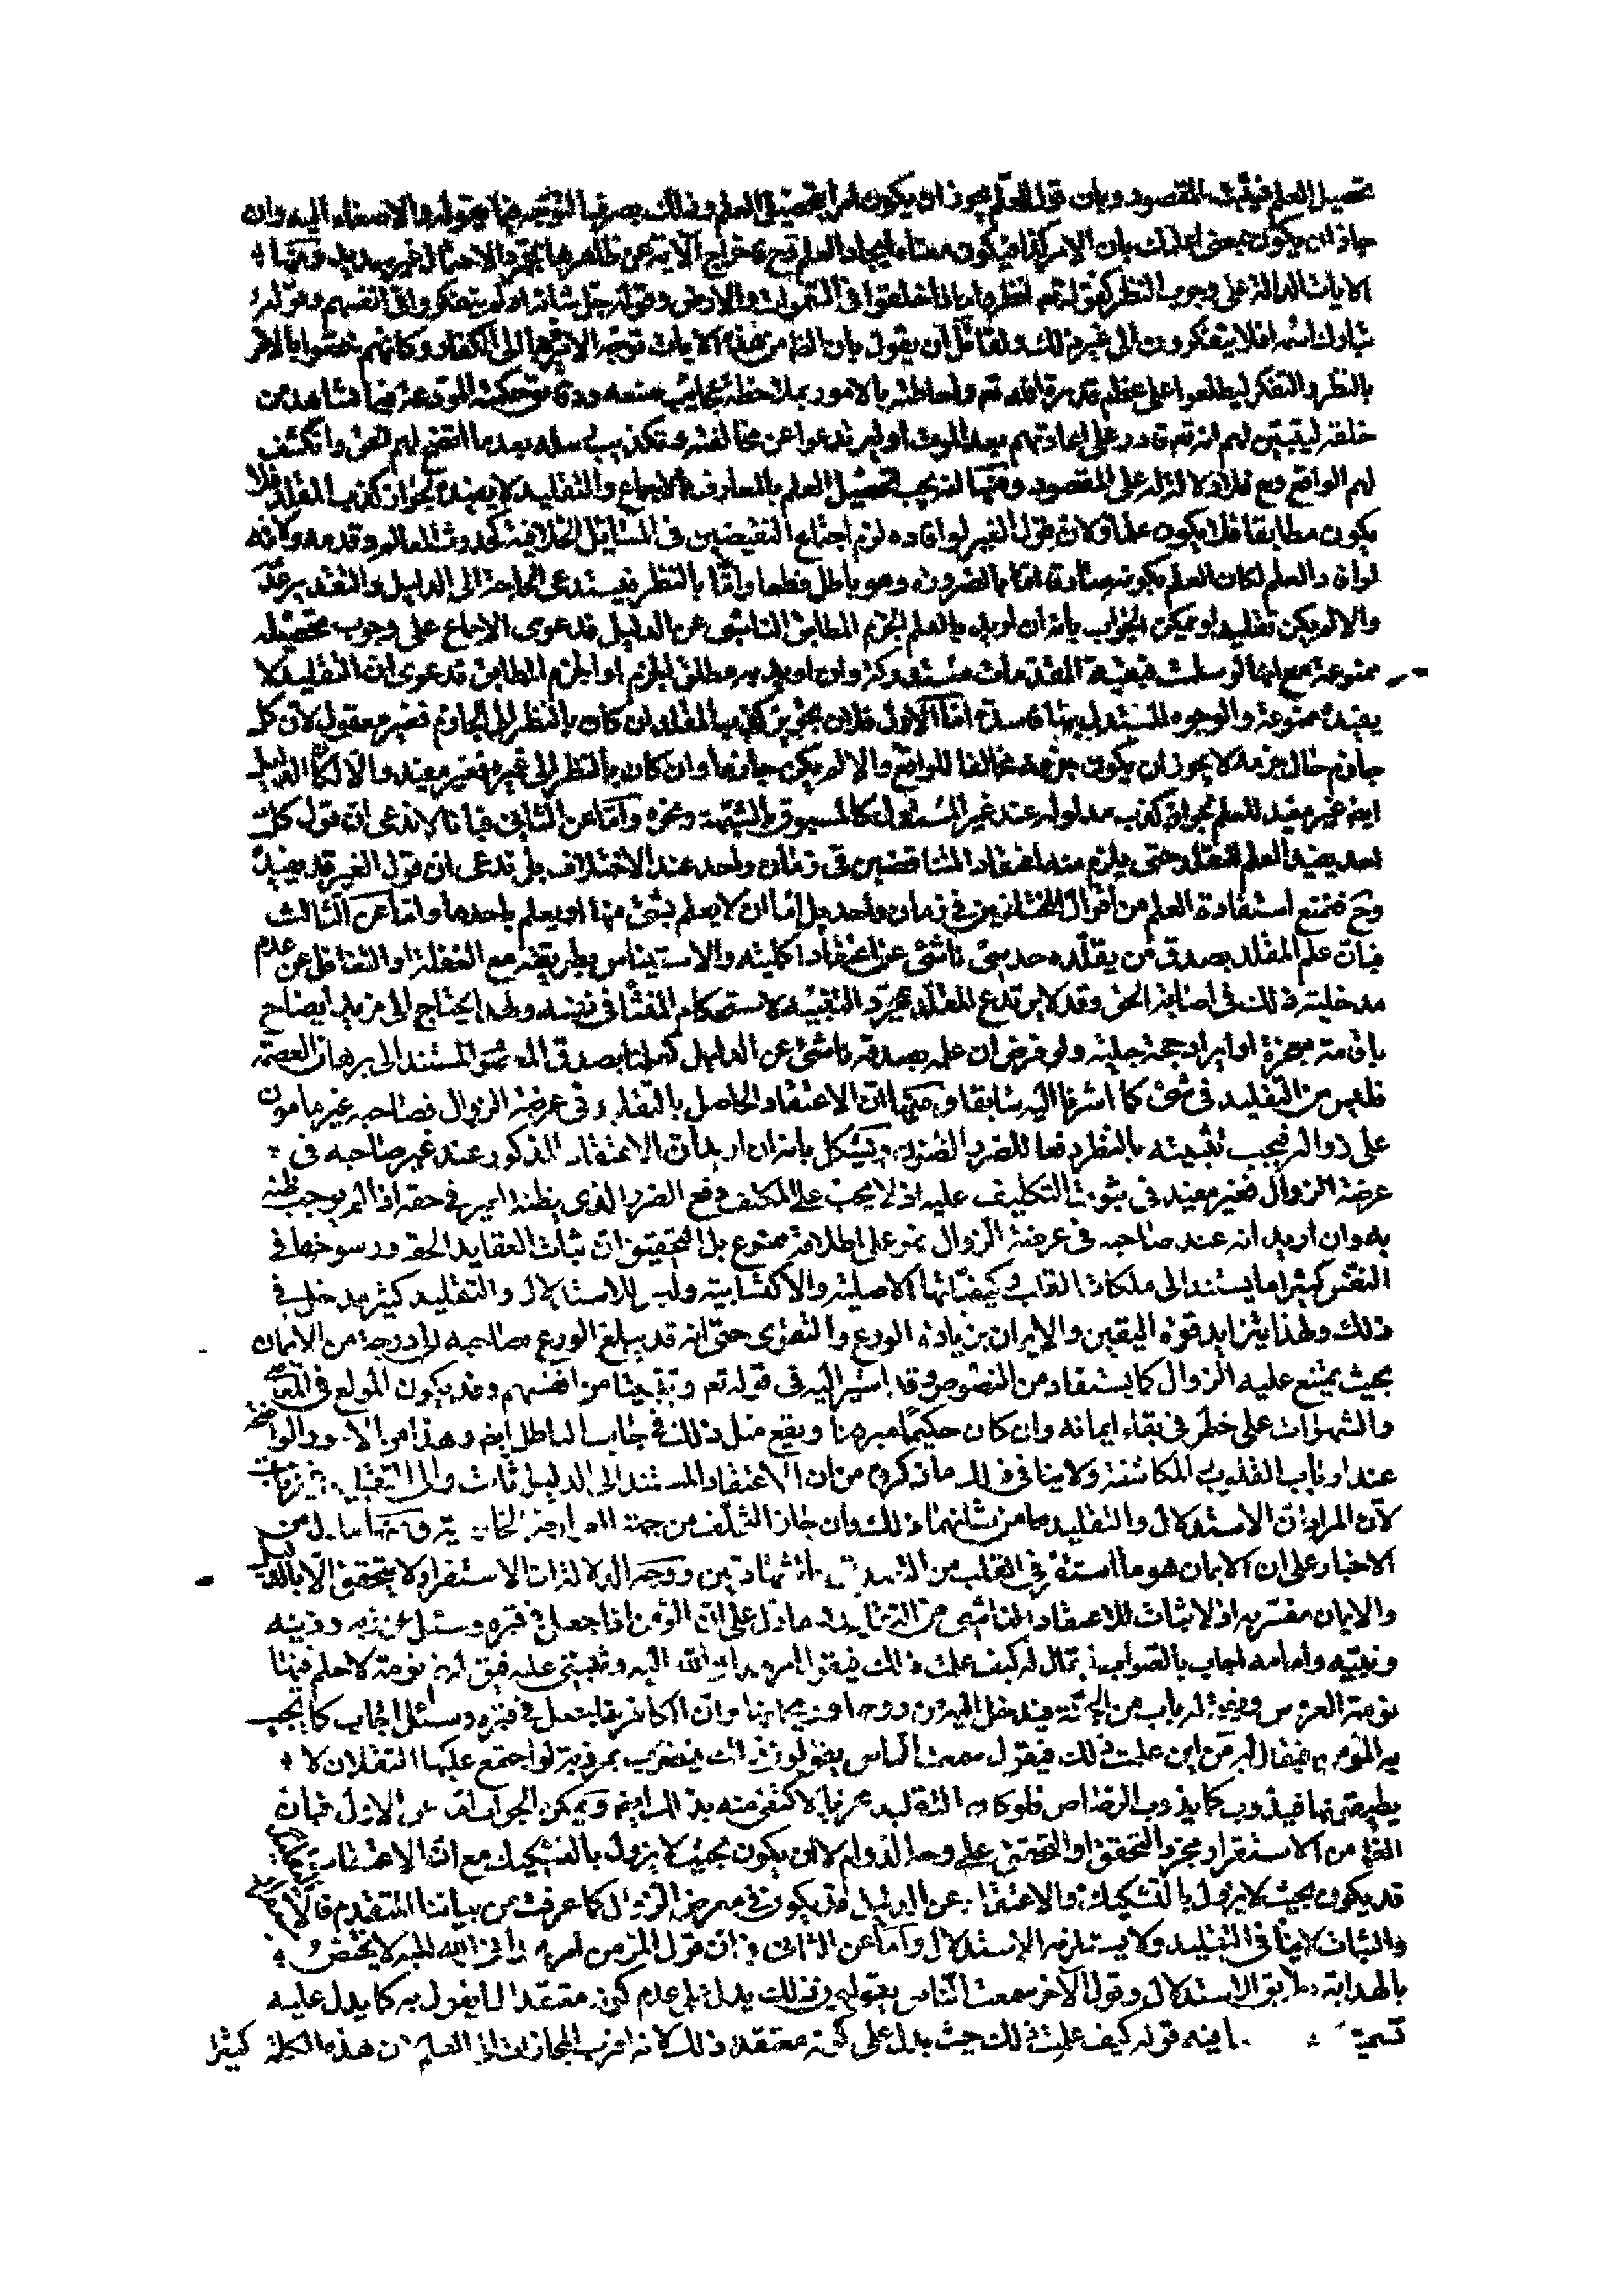 تحصيل العلم فيثبت المقصود وبان قول المعلم يجوز ان يكون امرا بتحصيل العلم وذلك بصرف التوجه الاصغاء اليه وانه
جاز ان يكون بمعنى بان الامر فيكون معناه ايجاد العلم اخراج الآية عن ظاهرها بمجرد الاحتمال غير سديد ومنها
الايات الدالة على وجوب النظر كقوله تعالى انظروا ماذا خلقوا فى السموات والارض وقوله جل شانه اولم يتفكروا فى انفسهم وقوله
تبارك اسمه افلا يتفكرون الى غير ذلك ولقائل ان يقول بان الظ من هذه الايات توجه الامر الى الكفار وكانهم خصوا بالامر
بالنظر والتفكر ليطلعوا على عظم قدرة الله تع واحاطته بالامور بملاحظة عجايب صنعه ودقايق حكمته المودعة فيما نشاهد من
خلقه ليتبين لهم انه تع قادر على اعادتهم بعد الموت او ليرتدعوا عن مخالفته وتكذيب رسله بعد ما اتضح لهم الحق وانكشف
لهم الواقع ومع ذلك فلا دلالة له على المقصود ومنها انه يجب تحصيل العلم بالمعارف بالاجماع والتقليد لا يفيده لجواز كذب المقلد فلا
يكون مطابقا فلا يكون علما ولان قول الغير لو افاده لزم اجتماع النقيضين فى المسائل الخلافية كحدوث العالم وقدمه ولانه
لو افاد العلم لكان العلم بكونه صادقا اما بالضرورة وهو باطل قطعا واما بالنظر فيستدعى الحاجة الى الدليل والتقدير عدمه
والا لم يكن تقليدا ويمكن الجواب بانه ان اريد بالعلم الجزم المطابق الناشى عن الدليل فدعوى الاجماع على وجوب تحصيله
ممنوعة مع انها لو سلمت فبقية المقدمات مستدركة وان اريد به مطلق الجزم او الجزم المطابق فدعوى ان التقليد لا
يفيده ممنوعة والوجوه المستدل بها فاسدة اما الاول فلان تجويز كذب المقلد ان كان بالنظر الى الجازم فغير معقول لان كل
جازم حال جزمه لا يجوز ان يكون جزمه مخالفا للواقع والا لم يكن جازما وان كان بالنظر الى غيره فغير مفيد والا لكان الدليل
ايضا غير مفيد للعلم لجواز كذب مدلوله عند غير المستدل كالمسبوق بالشبهة ونحوه واما عن الثانى فبانا لا ندعى ان قول كل
احد يفيد العلم للمقلد حتى يلزم منه اعتقاد المتناقضين فى زمان واحد عند الاختلاف بل ندعى ان قول الغير قد يفيده
وح فنمنع استفادة العلم من اقوال المختلفين فى زمان واحد بل اما ان لا يعلم بشئ منها او يعلم باحدها واما عن الثالث
فبان علم المقلد بصدق من يقلده حدسى ناشئ عن اعتقاد اكمليته والاستيناس بطريقته مع الغفلة او التغافل عن عدم
مدخلية ذلك فى اصابة الحق وقد لا يرتدع المقلد بمجرد التنبيه لاستحكام المنشا فى نفسه ولهذا يحتاج الى مزيد ايضاح
باقامة معجزة او ايراد حجة جلية ولو فرض ان علمه بصدقه ناشئ عن الدليل كعلمنا بصدق المعصوم المستند الى برهان العصمة
فليس من التقليد فى شئ كما اشرنا اليه سابقا ومنها ان الاعتقاد الحاصل بالتقليد فى عرضة الزوال فصاحبه غير مامون
على زواله فيجب تثبيته بالنظر دفعا للضرر المظنون ويشكل بانه ان اريد ان الاعتقاد المذكور عند غير صاحبه فى
عرضة الزوال فغير مفيد فى ثبوت التكليف عليه اذ لا يجب على المكلف دفع الضرر الذى يظنه الغير فى حقه اذا لم يوجب ظنه
به وان اريد انه عند صاحبه فى عرضة الزوال فهو على اطلاقه ممنوع بل التحقيق ان ثبات العقايد الحقة ورسوخها فى
النفس كثيرا ما يستند الى ملكات القلب وكيفياتها الاصلية والاكتسابية وليس للاستدلال والتقليد كثير مدخل فى
ذلك ولهذا يتزايد قوة اليقين والايمان بزيادة الورع والتقوى حتى انه قد يبلغ الورع بصاحبه الى درجة من الايمان
بحيث يمتنع عليه الزوال كما يستفاد من النصوص وقد اشير اليه فى قوله تع وتثبيتا من انفسهم وقد يكون المولع فى المعاصى
والشهوات على خطر فى بقاء ايمانه وان كان حكيما مبرهنا ويقع مثل ذلك فى جانب الباطل ايض وهذا من الامور الواضحة
عند ارباب القلوب المكاشفة ولا ينافى ذلك ما ذكروه من ان الاعتقاد المستند الى الدليل ثابت والى التقليد غير ثابت
لان المراد ان الاستدلال والتقليد مما من شانهما ذلك وان جاز التخلف من جهة العوارض الخارجية ومنها ما دل من
الاخبار على ان الايمان هو ما استقر فى القلب من التصديق بالشهادتين ووجه الدلالة ان الاستقرار لا يتحقق الا بالدليل
والايمان مفسر به اذ لا ثبات للاعتقاد الناشى من التقليد ومنها ما دل على ان المؤمن اذا جعل فى قبره وسئل عن ربه ودينه
ونبيه وامامه اجاب بالصواب فيقال له كيف علمت ذلك فيقول امر هدانى الله اليه وثبتنى عليه فيقال له نم نومة لا حلم فيها
نومة العروس ويفتح له باب من الجنة فيدخل اليه من روحها وريحانها وان الكافر يفعل فى قبره وسئل اجاب كما يجيب
به المؤمن فيقال له من اين علمت ذلك فيقول سمعت الناس يقولون ذلك فيضرب بمرزبة لو اجتمع عليها الثقلان لا
يطيقونها فيذوب كما يذوب الرصاص فلو كان التقليد مجزيا لاكتفى منه بذلك ايض ويمكن الجواب اما عن الاول فبان
الظ من الاستقرار مجرد التحقق او التحقق على وجه الدوام لا ان يكون بحيث لا يزول بالتشكيك مع ان الاعتقاد
قد يكون بحيث لا يزول بالتشكيك والاعتقاد عن الدليل قد يكون فى معرض الزوال كما عرفت من بياننا المتقدم
والثبات لا ينافى التقليد ولا يستلزم الاستدلال واما عن الثانى فبان قول المؤمن امر هدانى الله اليه لا يختص
بالهداية بطريق الاستدلال وقول الآخر سمعت الناس يقولون ذلك يدل على عدم كونه معتقدا لما يقول به كما يدل عليه
قوله كيف علمت ذلك حيث يدل على كونه معتقدا ذلك لانه اقرب المجازات الى العلم ان هذه الكلمة كثيرا